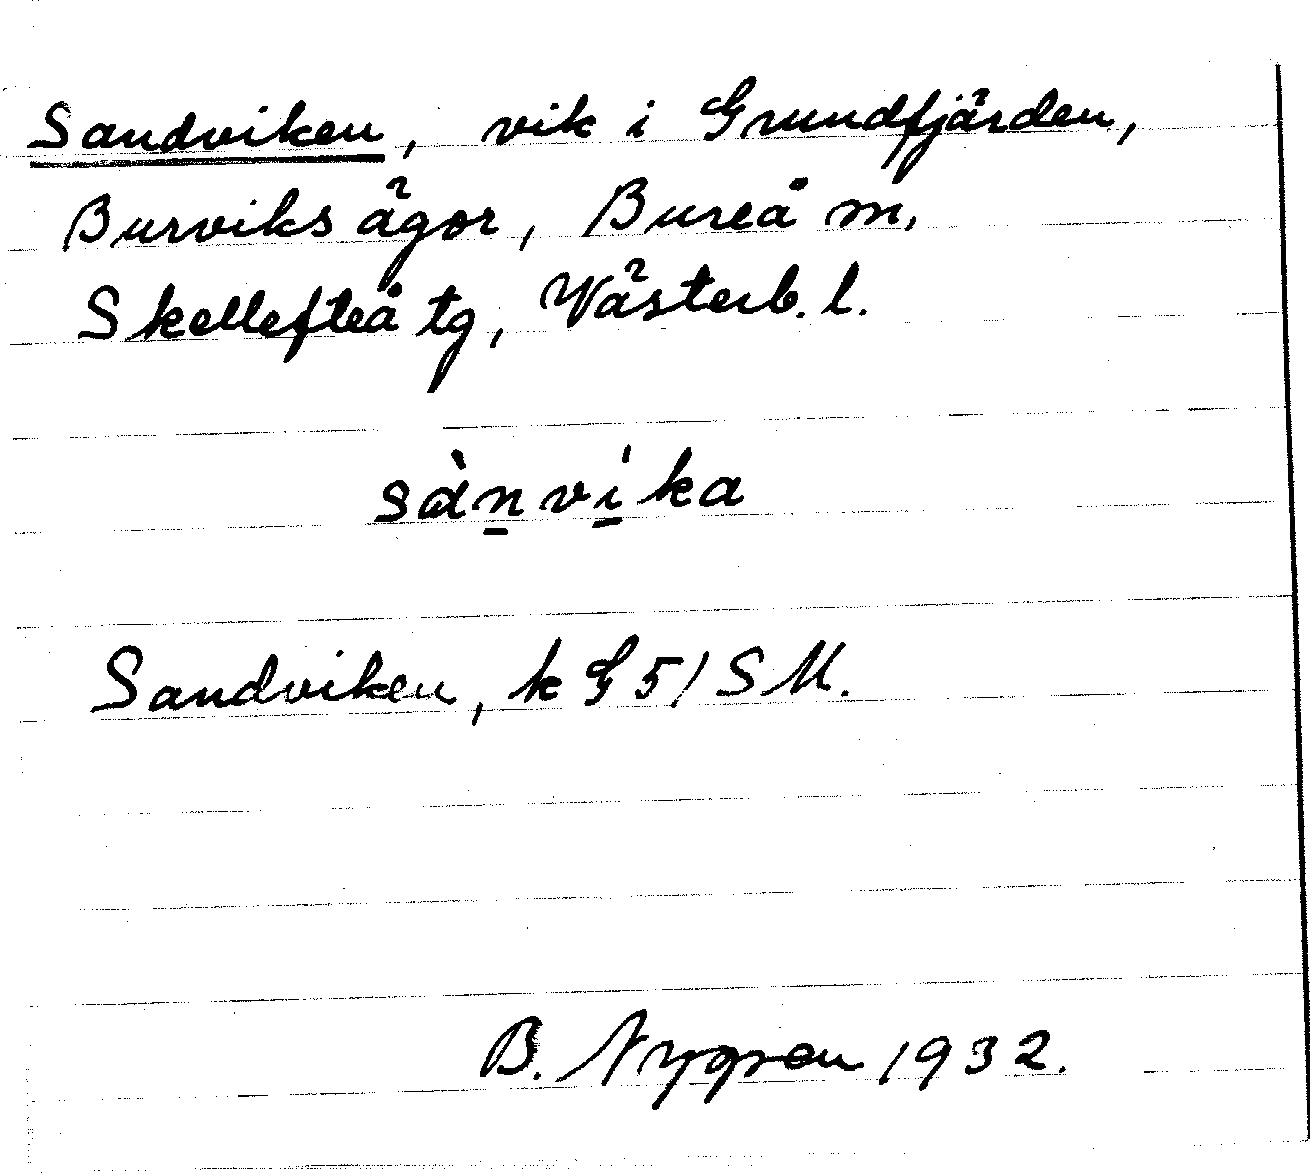 Sandviken, vik i Grundfjärden,
Burviks ägor, Bureå m,
Skellefteå tg, Västerb. l.
sànvi̍ka
Sandviken, k G 5/ S M.
B. Nygren 1932.